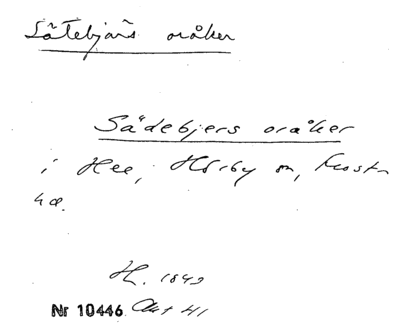 Såtebjärs oråker
Sädebjers oråker
i Hee, Hörby sn, Frosta
hd.
H. 1849
Nr 10446 Akt 41